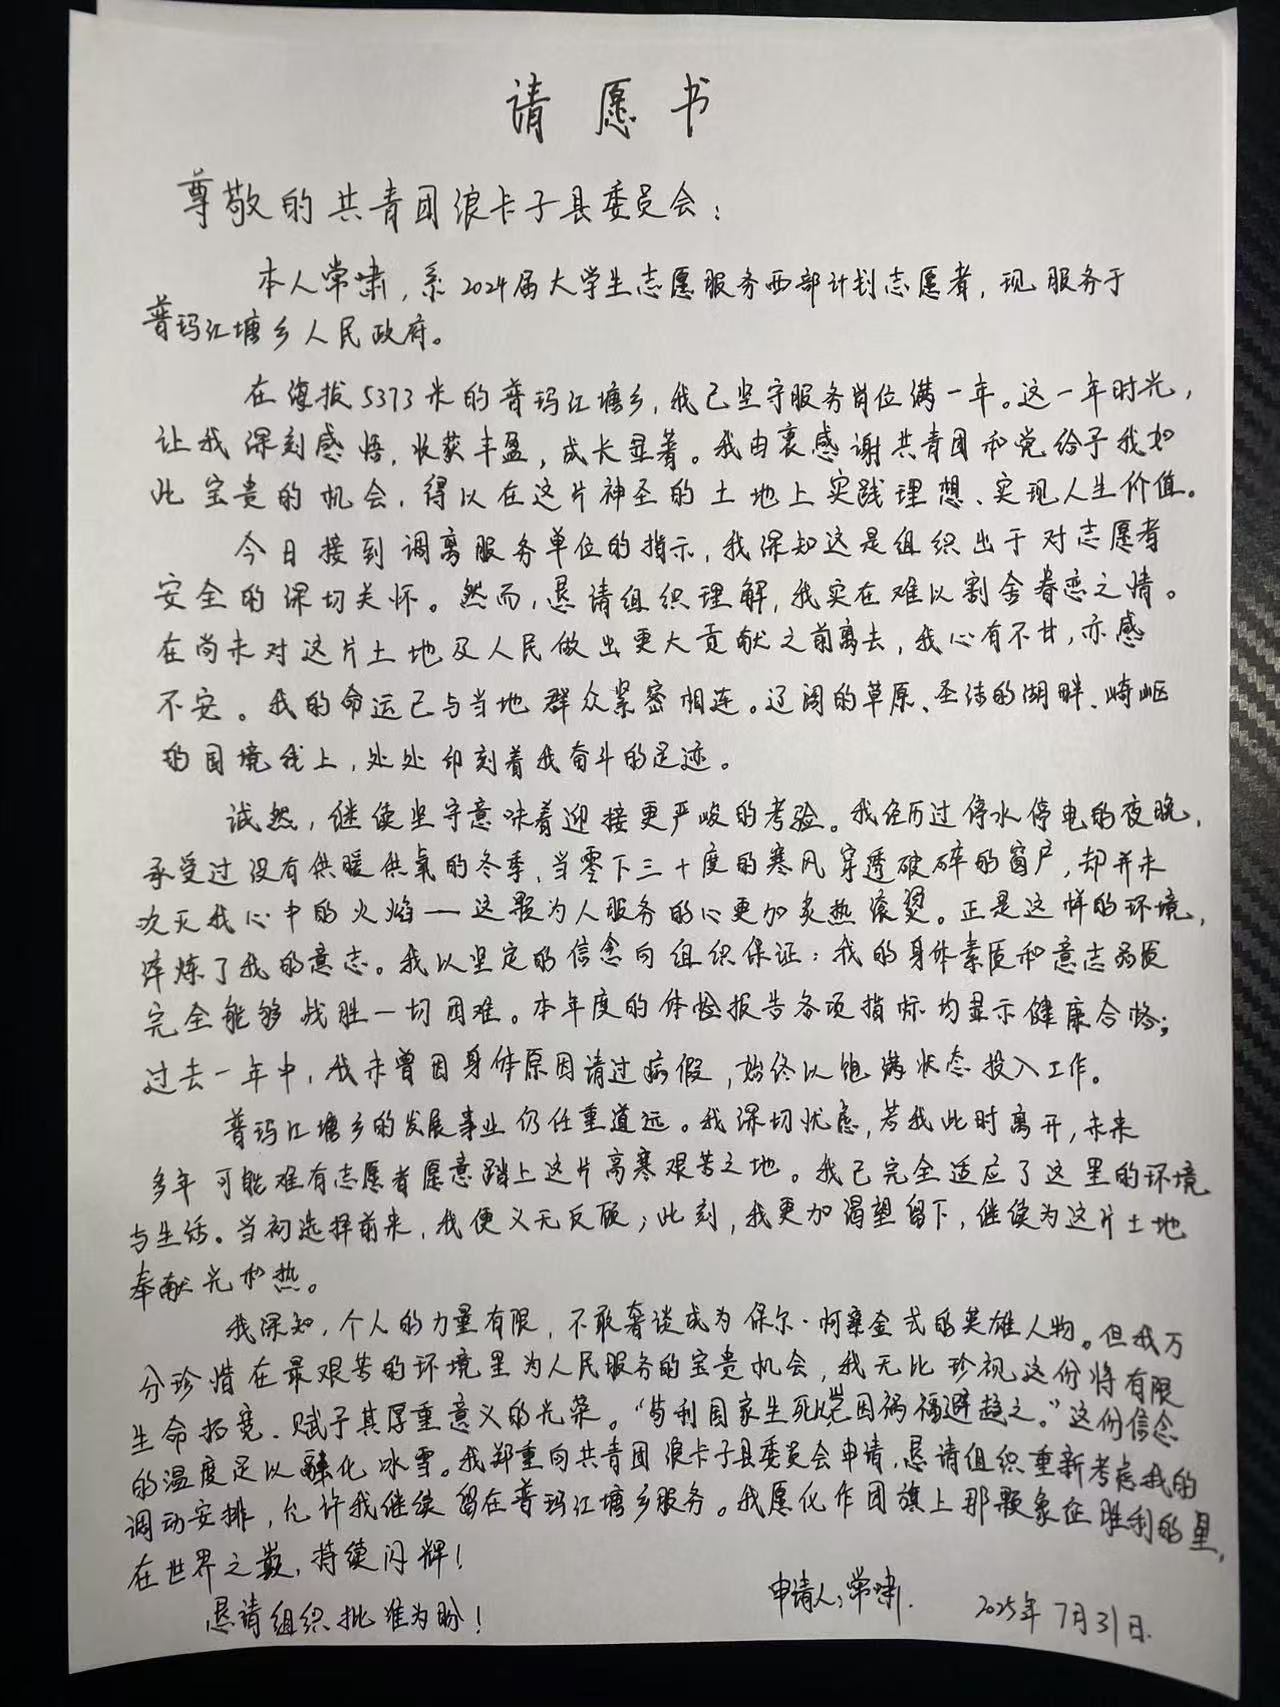 请愿书
尊敬的共青团浪卡子县委员会:
本人常啸,系2024届大学生志愿服务西部计划志愿者,现服务于
普玛江塘乡人民政府。
在海拔5373米的普玛江塘乡,我已坚守服务岗位满一年。这一年时光,
让我深刻感悟,收获丰盈,成长显著。我由衷感谢共青团和党给予我如
此宝贵的机会,得以在这片神圣的土地上实践理想、实现人生价值。
今日接到调离服务单位的指示,我深知这是组织出于对志愿者
安全的深切关怀。然而,恳请组织理解,我实在难以割舍眷恋之情。
在尚未对这片土地及人民做出更大贡献之前离去,我心有不甘,亦感
不安。我的命运已与当地群众紧密相连。辽阔的草原、圣洁的湖畔、崎岖
的国境线上,处处印刻着我奋斗的足迹。
诚然,继续坚守意味着迎接更严峻的考验。我经历过停水停电的夜晚,
承受过没有供暖供氧的冬季,当零下三十度的寒风穿透破碎的窗户,却并未
吹灭我心中的火焰——这颗为人服务的心更加炙热滚烫。正是这样的环境,
淬炼了我的意志。我以坚定的信念向组织保证:我的身体素质和意志品质
完全能够战胜一切困难。本年度的体检报告各项指标均显示健康合格;
过去一年中,我未曾因身体原因请过病假,始终以饱满状态投入工作。
普玛江塘乡的发展事业仍任重道远。我深切忧虑,若我此时离开,未来
多年可能难有志愿者愿意踏上这片高寒艰苦之地。我已完全适应了这里的环境
与生活。当初选择前来,我便义无反顾;此刻,我更加渴望留下,继续为这片土地
奉献光和热。
我深知,个人的力量有限,不敢奢谈成为保尔·柯察金式的英雄人物。但我万
分珍惜在最艰苦的环境里为人民服务的宝贵机会,我无比珍视这份将有限
生命拓宽、赋予其厚重意义的光荣。“苟利国家生死以,岂因祸福避趋之。”这份信念
的温度足以融化冰雪。我郑重向共青团浪卡子县委员会申请,恳请组织重新考虑我的
调动安排,允许我继续留在普玛江塘乡服务。我愿化作团旗上那颗象征胜利的星,
在世界之巅,持续闪辉!
恳请组织批准为盼!
申请人:常啸.
2025年7月31日.